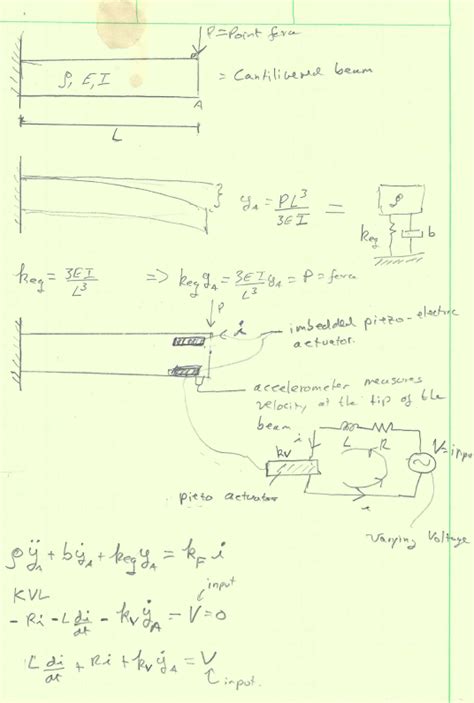 P=Point force
ρ, E, I
= Cantilivered beam
A
L
y_A = PL³/3EI =
ρ
keq
b
keq = 3EI/L³ => keq y_A = 3EI/L³ y_A = P = force
P
i
imbedded piezo-electric
actuator.
accelerometer measures
velocity at the tip of the
beam
i
L R
kv
V=input
piezo actuator
i
varying Voltage
ρÿ_A + bẏ_A + keq y_A = k_F i
input
KVL
-Ri - L di/dt - kv ẏ_A = V = 0
L di/dt + Ri + kv ẏ_A = V
input.